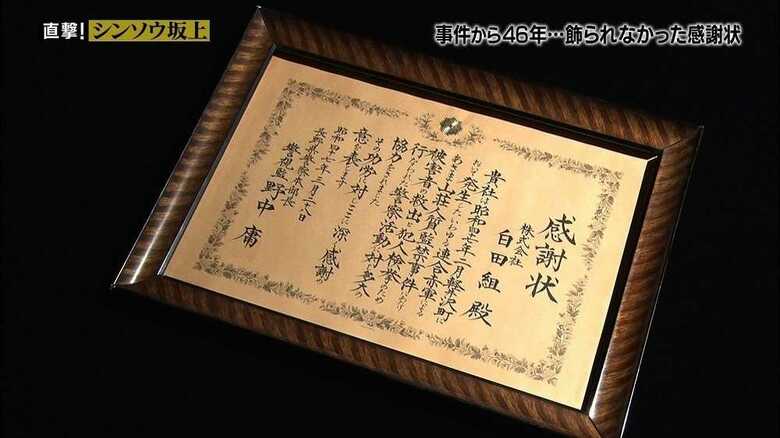 直撃!シンソウ坂上
事件から46年…飾られなかった感謝状
感謝状
株式会社
白田組 殿
貴社は昭和四十七年二月軽井沢町に
おいて発生したいわゆる連合赤軍による
あさま山荘人質監禁事件において
被害者の救出と犯人検挙のため
行なわれた警察活動に対し多大の
協力をされました
その功労に対しここに深く感謝の
意を表します
昭和四十七年三月二八日
長野県警察本部長
警視監 野中 庸